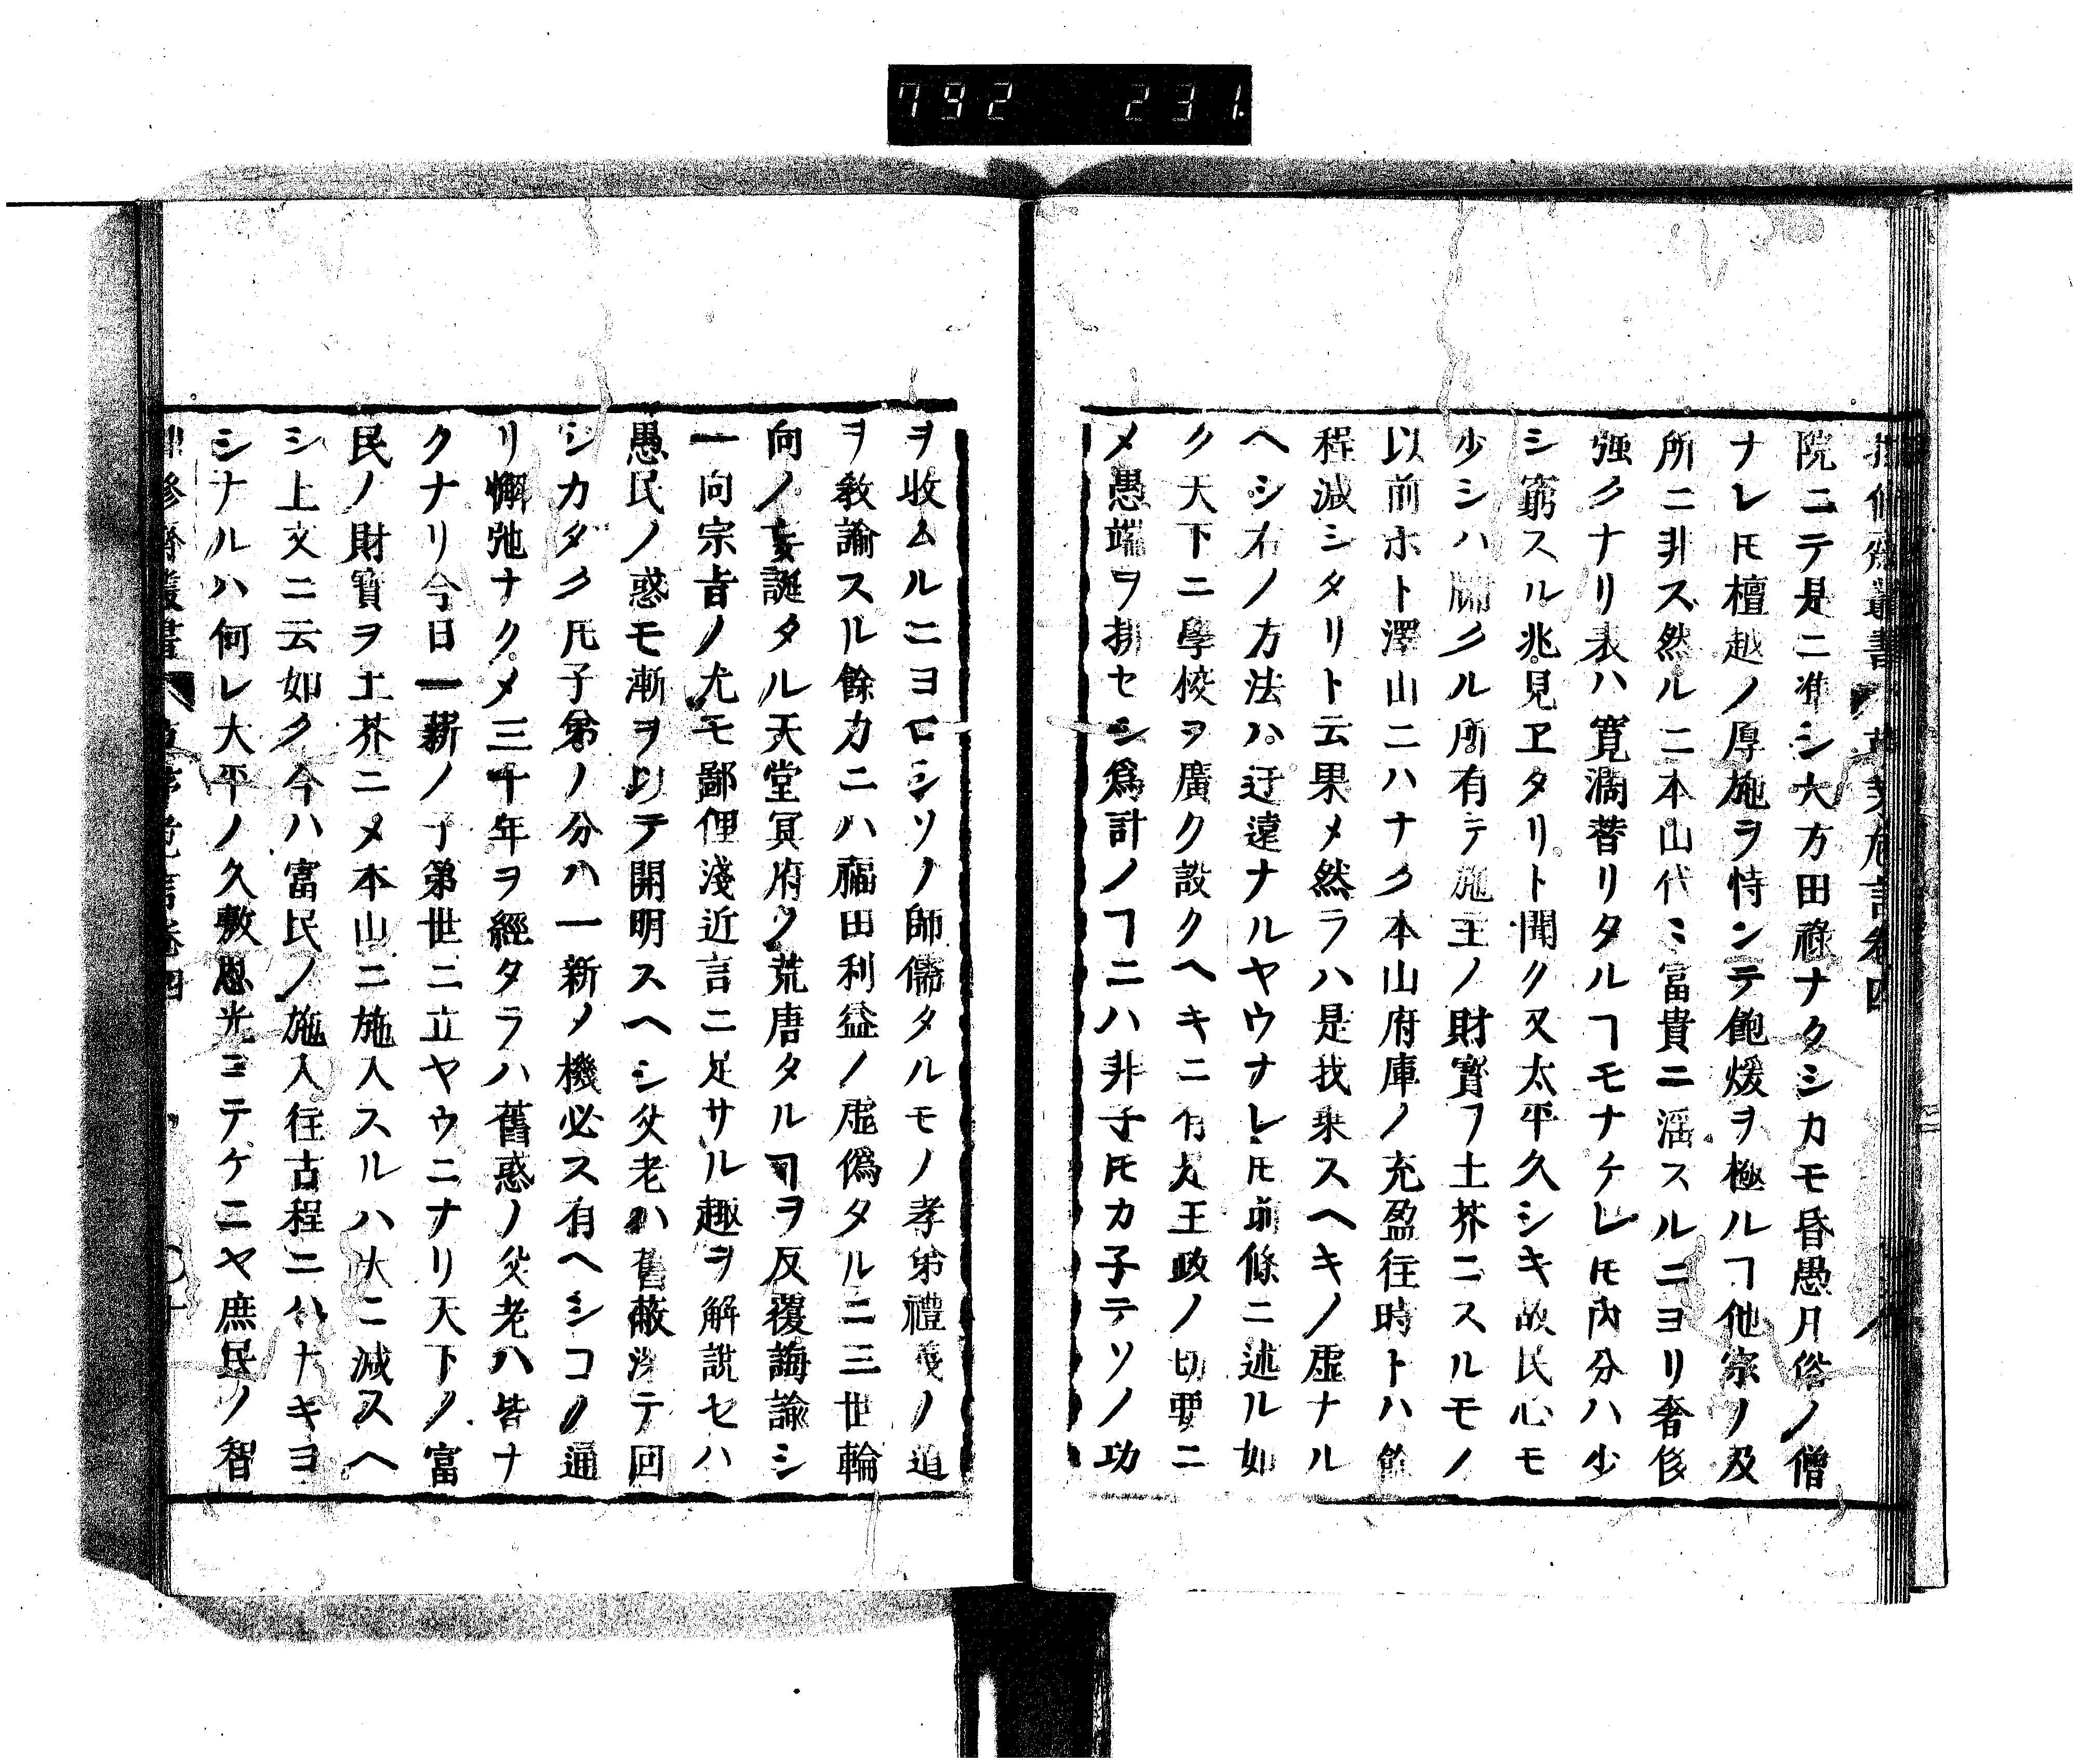 792 231
院ニテ是ニ準シ大方田祿ナクシカモ昏愚凡俗ノ僧
ナレ𪜈檀越ノ厚施ヲ恃ンテ飽煖ヲ極ルヿ他宗ノ及
所ニ非ス然ルニ本山代ミ富貴ニ滛スルニヨリ奢侈
强クナリ表ハ寛濶替リタルヿモナケレ𪜈內分ハ少
シ窮スル兆見ヱタリト聞ク又太平久シキ故民心モ
少シハ牖クル所有テ施主ノ財寳ヲ土芥ニスルモノ
以前ホト澤山ニハナク本山府庫ノ充盈往時トハ餘
程減シタリト云果メ然ラハ是我乗スヘキノ虛ナル
ヘシ右ノ方法ハ迂遠ナルヤウナレ𪜈前條ニ述ル如
ク天下ニ學校ヲ廣ク設クヘキニ付尤王政ノ切要ニ
メ愚端ヲ排セシ爲計ノヿニハ非子𪜈カ子テソノ功
ヲ收ムルニヨロシソノ師儒タルモノ孝弟禮義ノ道
ヲ敎諭スル餘力ニハ福田利益ノ虛僞タルニ三世輪
向ノ妄誕タル天堂冥府ノ荒唐タルヿヲ反覆誨諭シ
一向宗旨ノ尤モ鄙俚淺近言ニ足サル趣ヲ解說セハ
愚民ノ惑モ漸ヲ以テ開明スヘシ父老ハ舊蔽深テ回
シカタク𪜈子弟ノ分ハ一新ノ機必ス有ヘシコノ通
リ懈弛ナクメ三十年ヲ經タラハ舊惑ノ父老ハ皆ナ
クナリ今日一新ノ子弟世ニ立ヤウニナリ天下ノ富
民ノ財寳ヲ土芥ニメ本山ニ施入スルハ大ニ減スヘ
シ上文ニ云如ク今ハ富民ノ施入往古程ニハナキヨ
シナルハ何レ大平ノ久敷恩光ミテケニヤ庶民ノ智